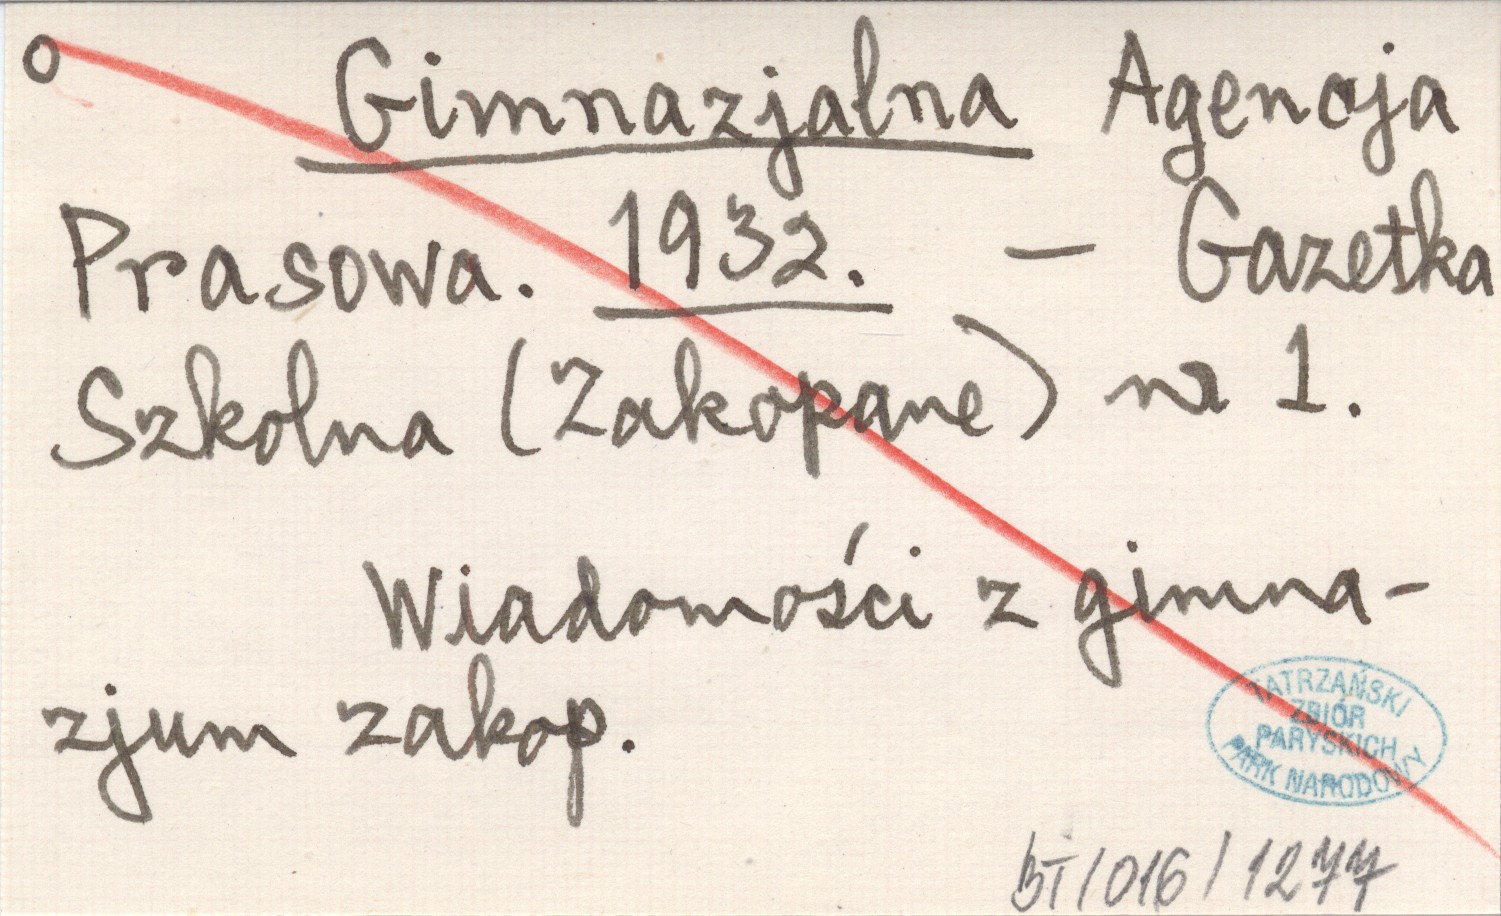 o Gimnazjalna Agencja
Prasowa. 1932. — Gazetka
Szkolna (Zakopane) nr 1.
Wiadomości z gimna-
zjum zakop.
TATRZAŃSKI
ZBIÓR
PARYSKICH
PARK NARODOWY
BT/016/1277